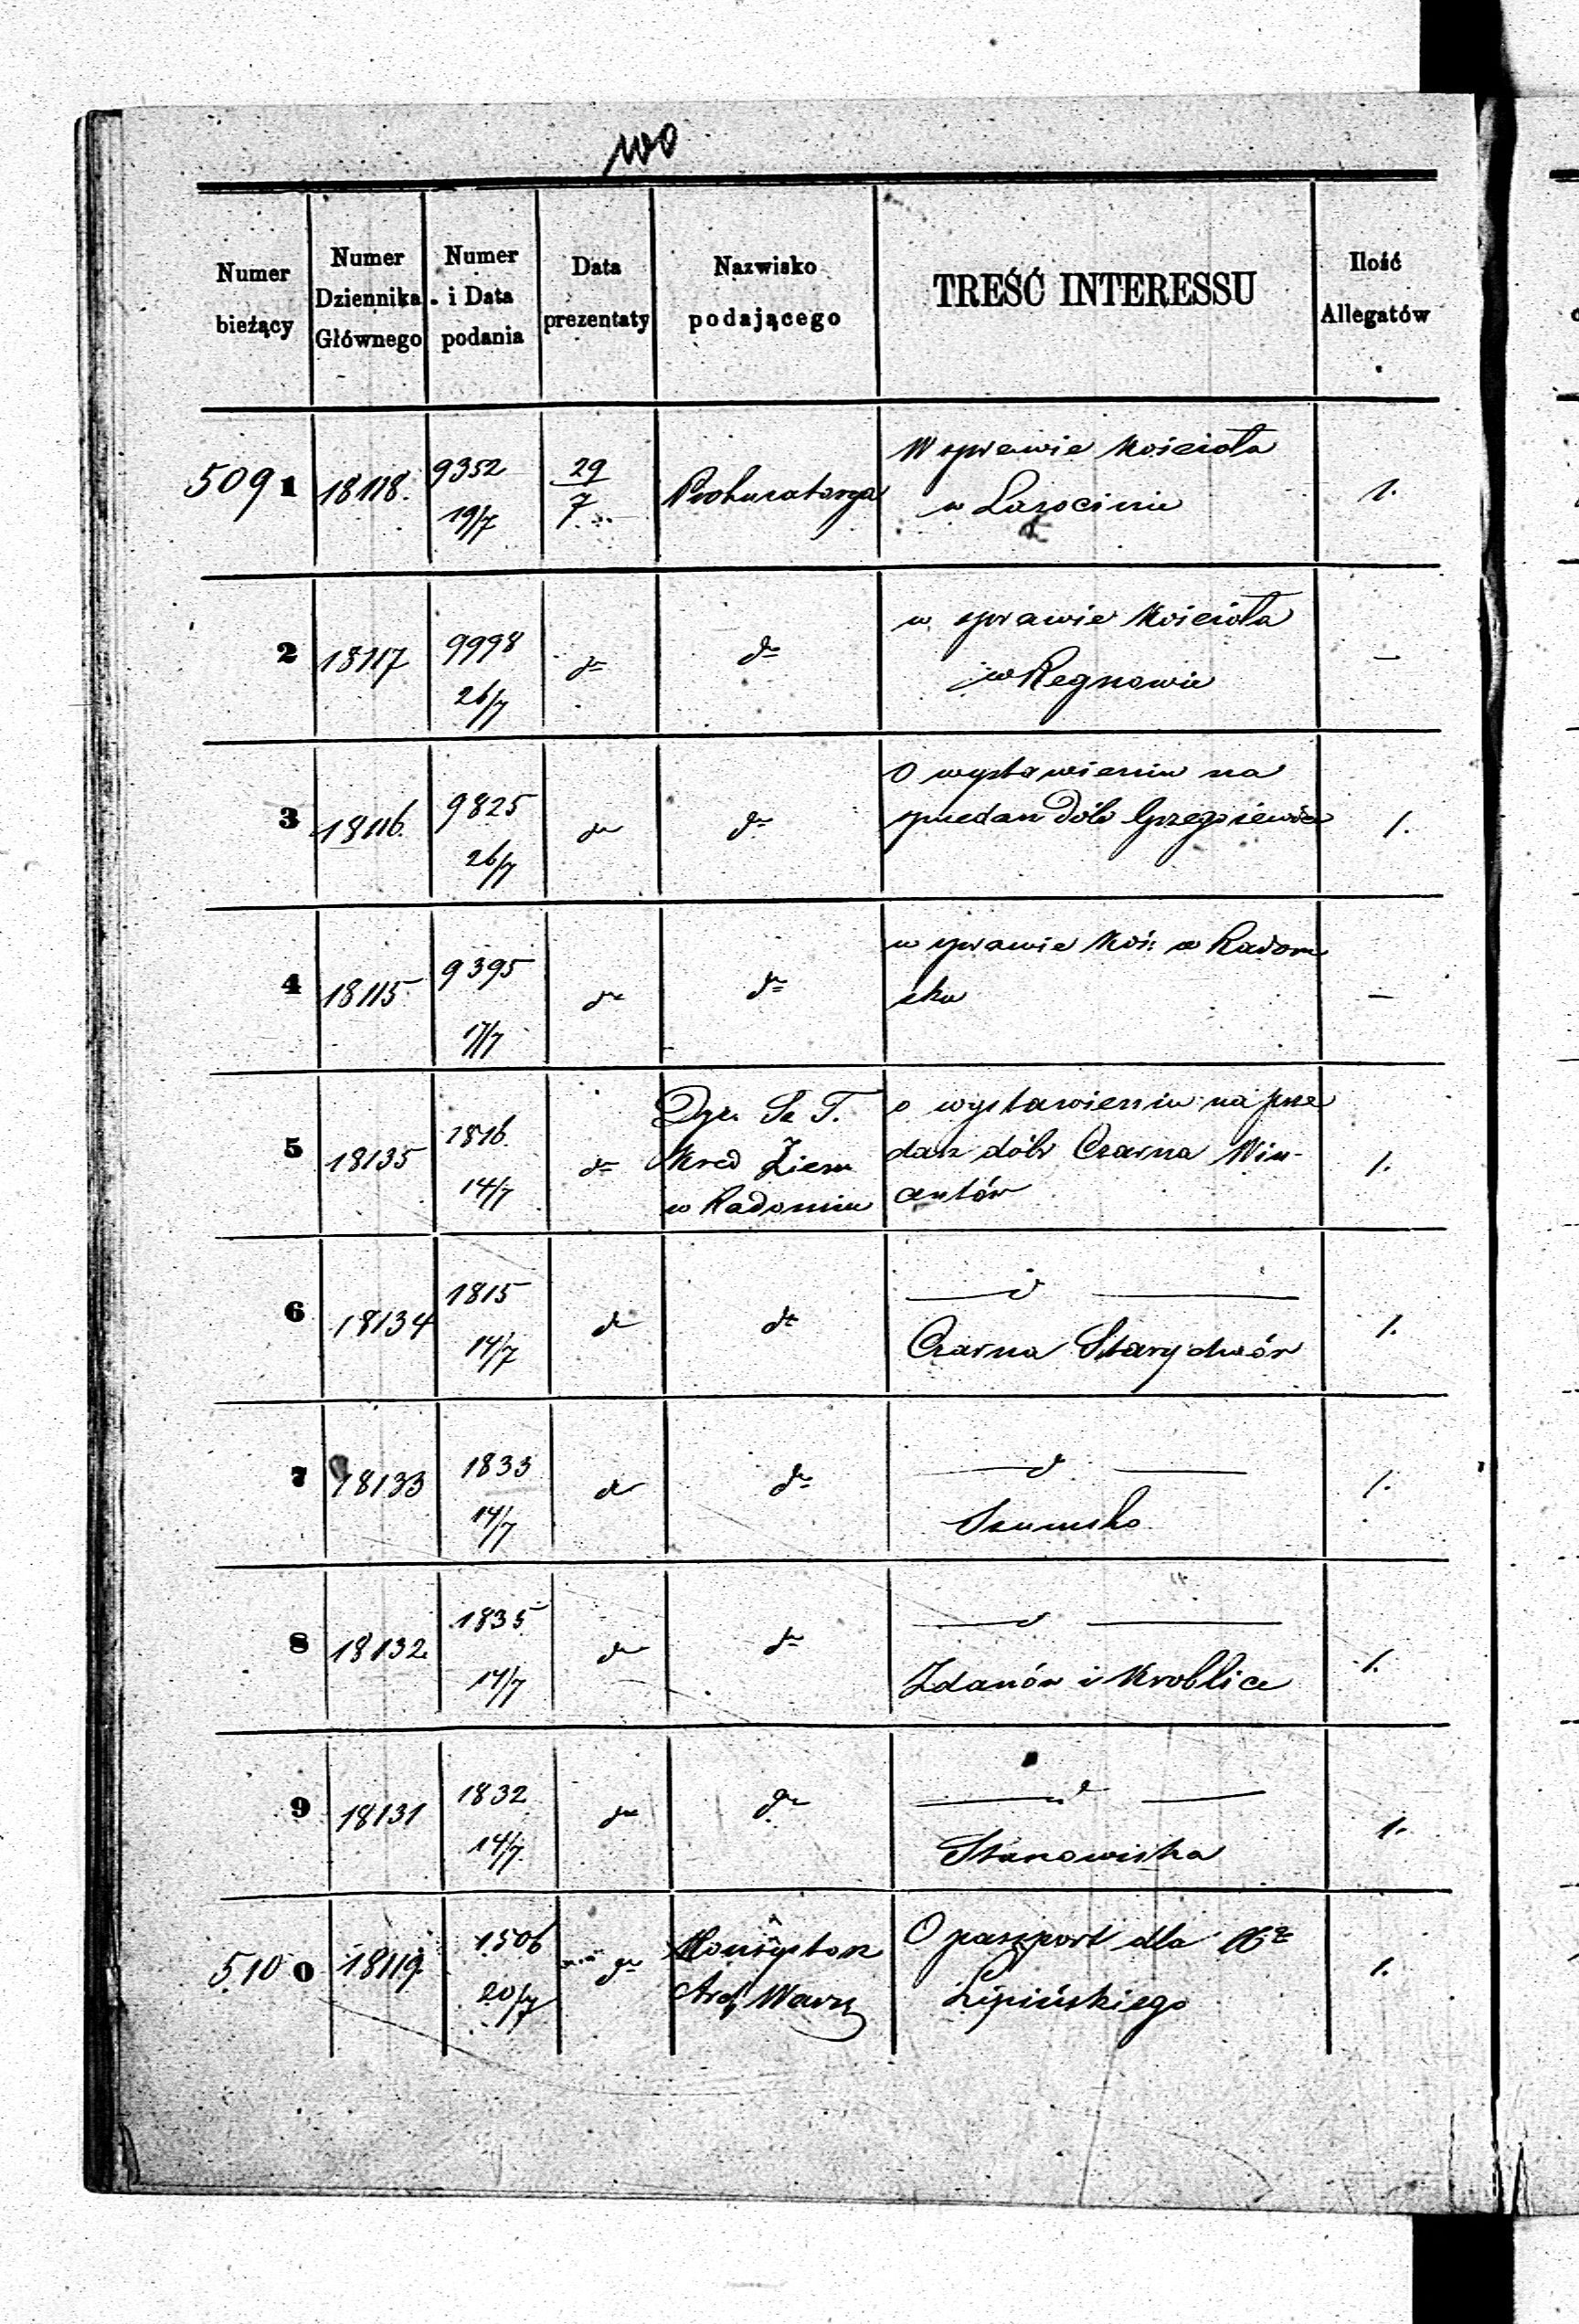 100
Numer bieżący
Numer Dziennika Głównego
Numer i Data podania
Data prezentaty
Nazwisko podającego
TREŚĆ INTERESSU
Ilość Allegatów
5091 18118. 9352 19/7 29/7 Prokuratorya W sprawie Kościoła 1.
w Lasocinie
2 18117 9998 26/7 do do w sprawie Kościoła —
w Regnowie
3 18116. 9825 26/7 do do O wystawieniu na 1.
sprzedaż dóbr Grzegorzewice
4 18115 9395 17/7 do do w sprawie Koś: w Radom —
sku
5 18135 1816. 14/7 do Dyr. Sz T. o wystawieniu na prze 1.
Kred Ziem daż dóbr Czarna Win-
w Radomiu centów
6 18134 1815 14/7 do do — d — 1.
Czarna Starydwór
7 18133 1833 14/7 do do — d — 1.
Szumsko
8 18132. 1835 14/7 do do — d — 1.
Zdanów i Kroblice
9 18131 1832 14/7 do do — d — 1.
Stanowiska
5100 18119. 1506 20/7 do Konsystorz O paszport dla Xa 1.
Arch Warsz Lipińskiego